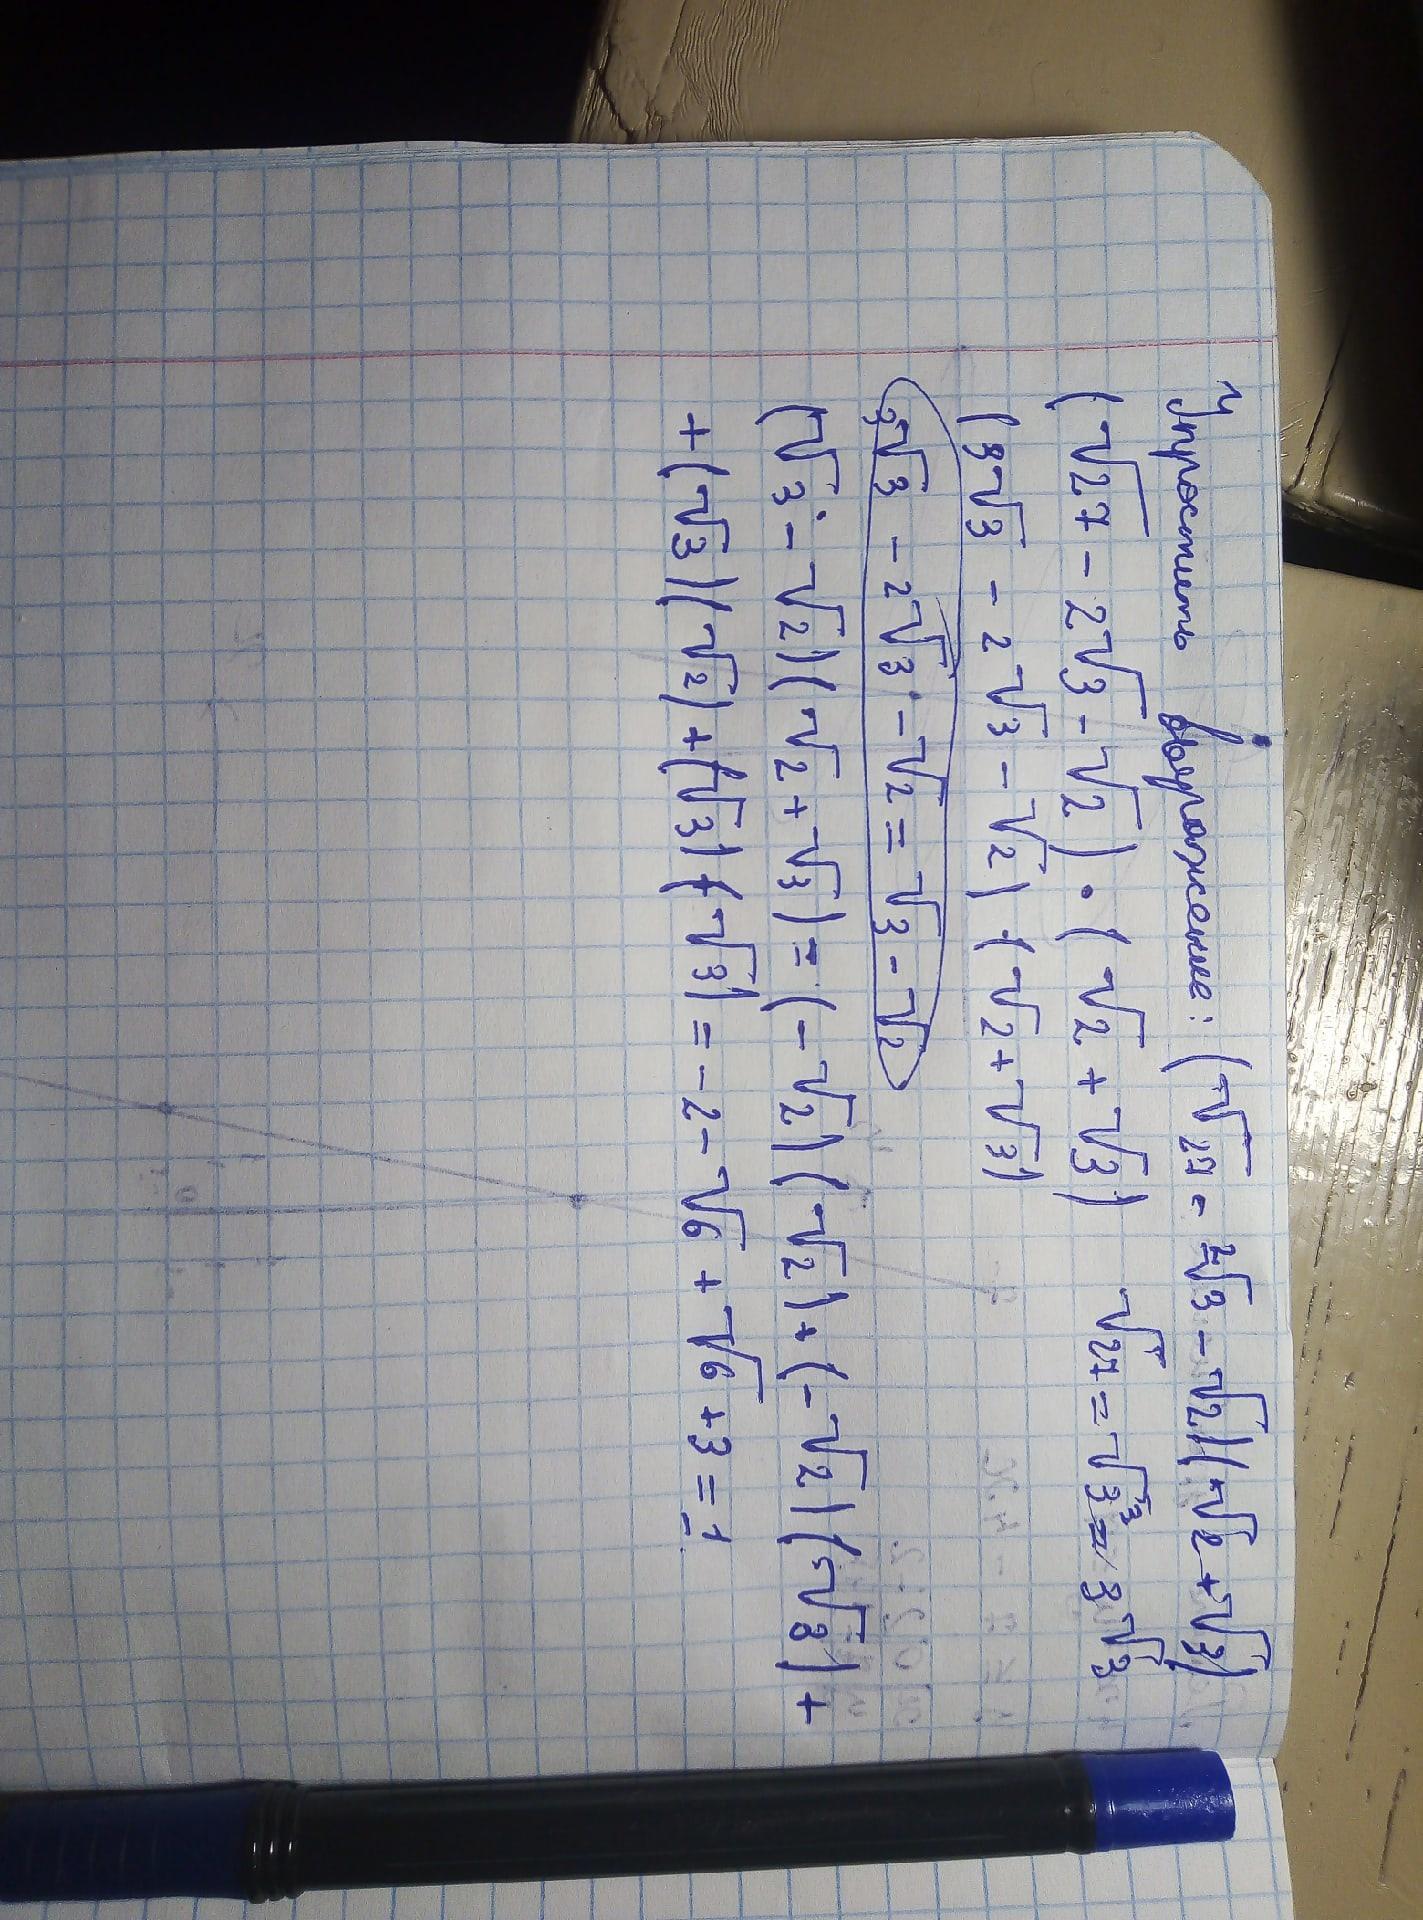 Упростить выражение: (√27 - 2√3 - √2)(√2 + √3)
(√27 - 2√3 - √2) · (√2 + √3) √27 = √3³ = 3√3
(3√3 - 2√3 - √2) (√2 + √3)
3√3 - 2√3 - √2 = √3 - √2
(√3 - √2)(√2 + √3) = (-√2)(√2) + (-√2)(√3) +
+ (√3)(√2) + (√3)(√3) = -2 - √6 + √6 + 3 = 1